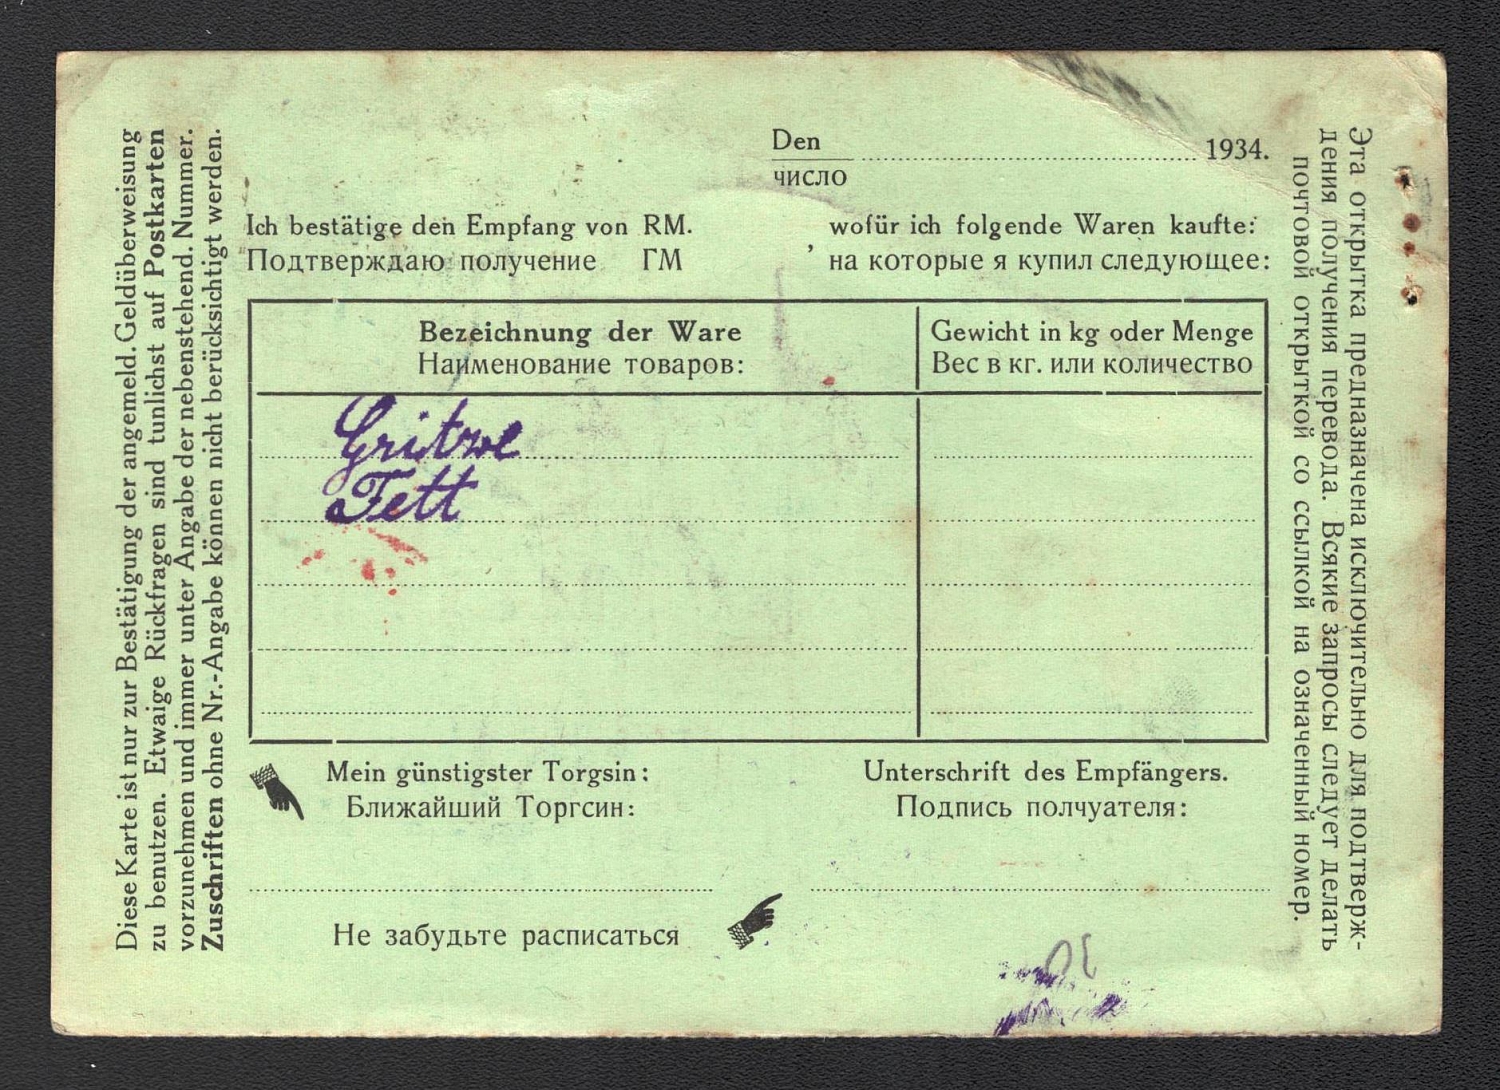 Diese Karte ist nur zur Bestätigung der angemeld. Geldüberweisung
zu benutzen. Etwaige Rückfragen sind tunlichst auf Postkarten
vorzunehmen und immer unter Angabe der nebenstehend. Nummer.
Zuschriften ohne Nr.-Angabe können nicht berücksichtigt werden.
Den 1934.
число
Ich bestätige den Empfang von RM. wofür ich folgende Waren kaufte:
Подтверждаю получение ГМ , на которые я купил следующее:
Bezeichnung der Ware
Наименование товаров:
Gewicht in kg oder Menge
Вес в кг. или количество
Gritze
Fett
Mein günstigster Torgsin:
Ближайший Торгсин:
Unterschrift des Empfängers.
Подпись полчуателя:
Не забудьте расписаться
Эта открытка предназначена исключительно для подтверж-
дения получения перевода. Всякие запросы следует делать
почтовой открыткой со ссылкой на означенный номер.